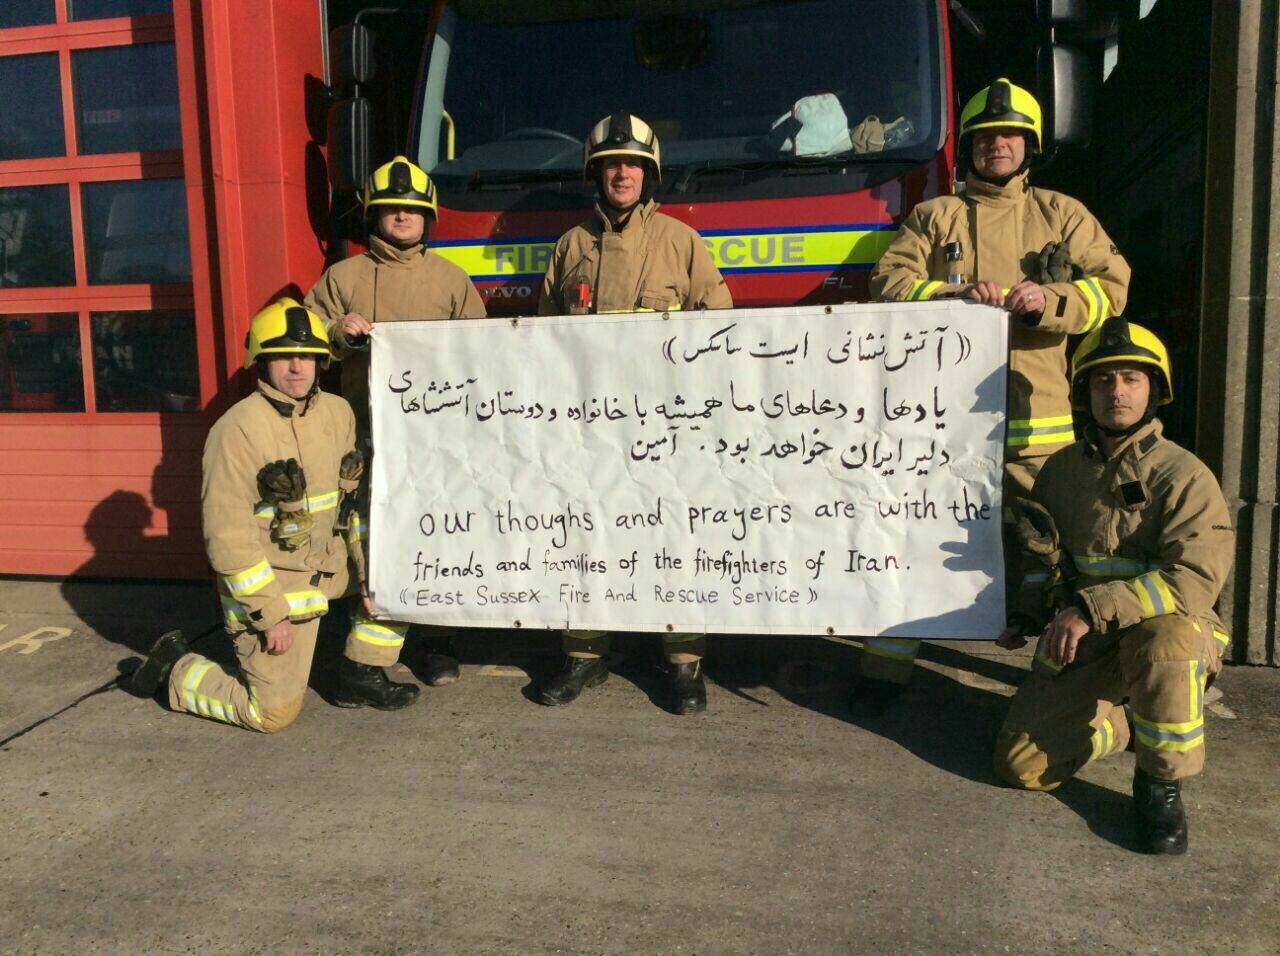 FIRE
FIR
SCUE
VOLVO
FL
((آتش‌نشانی ایست ساسکس))
یادها و دعاهای ما همیشه با خانواده و دوستان آتشنشاهای
دلیر ایران خواهد بود. آمین
our thoughs and prayers are with the
friends and families of the firefighters of Iran.
((East Sussex Fire And Rescue Service))